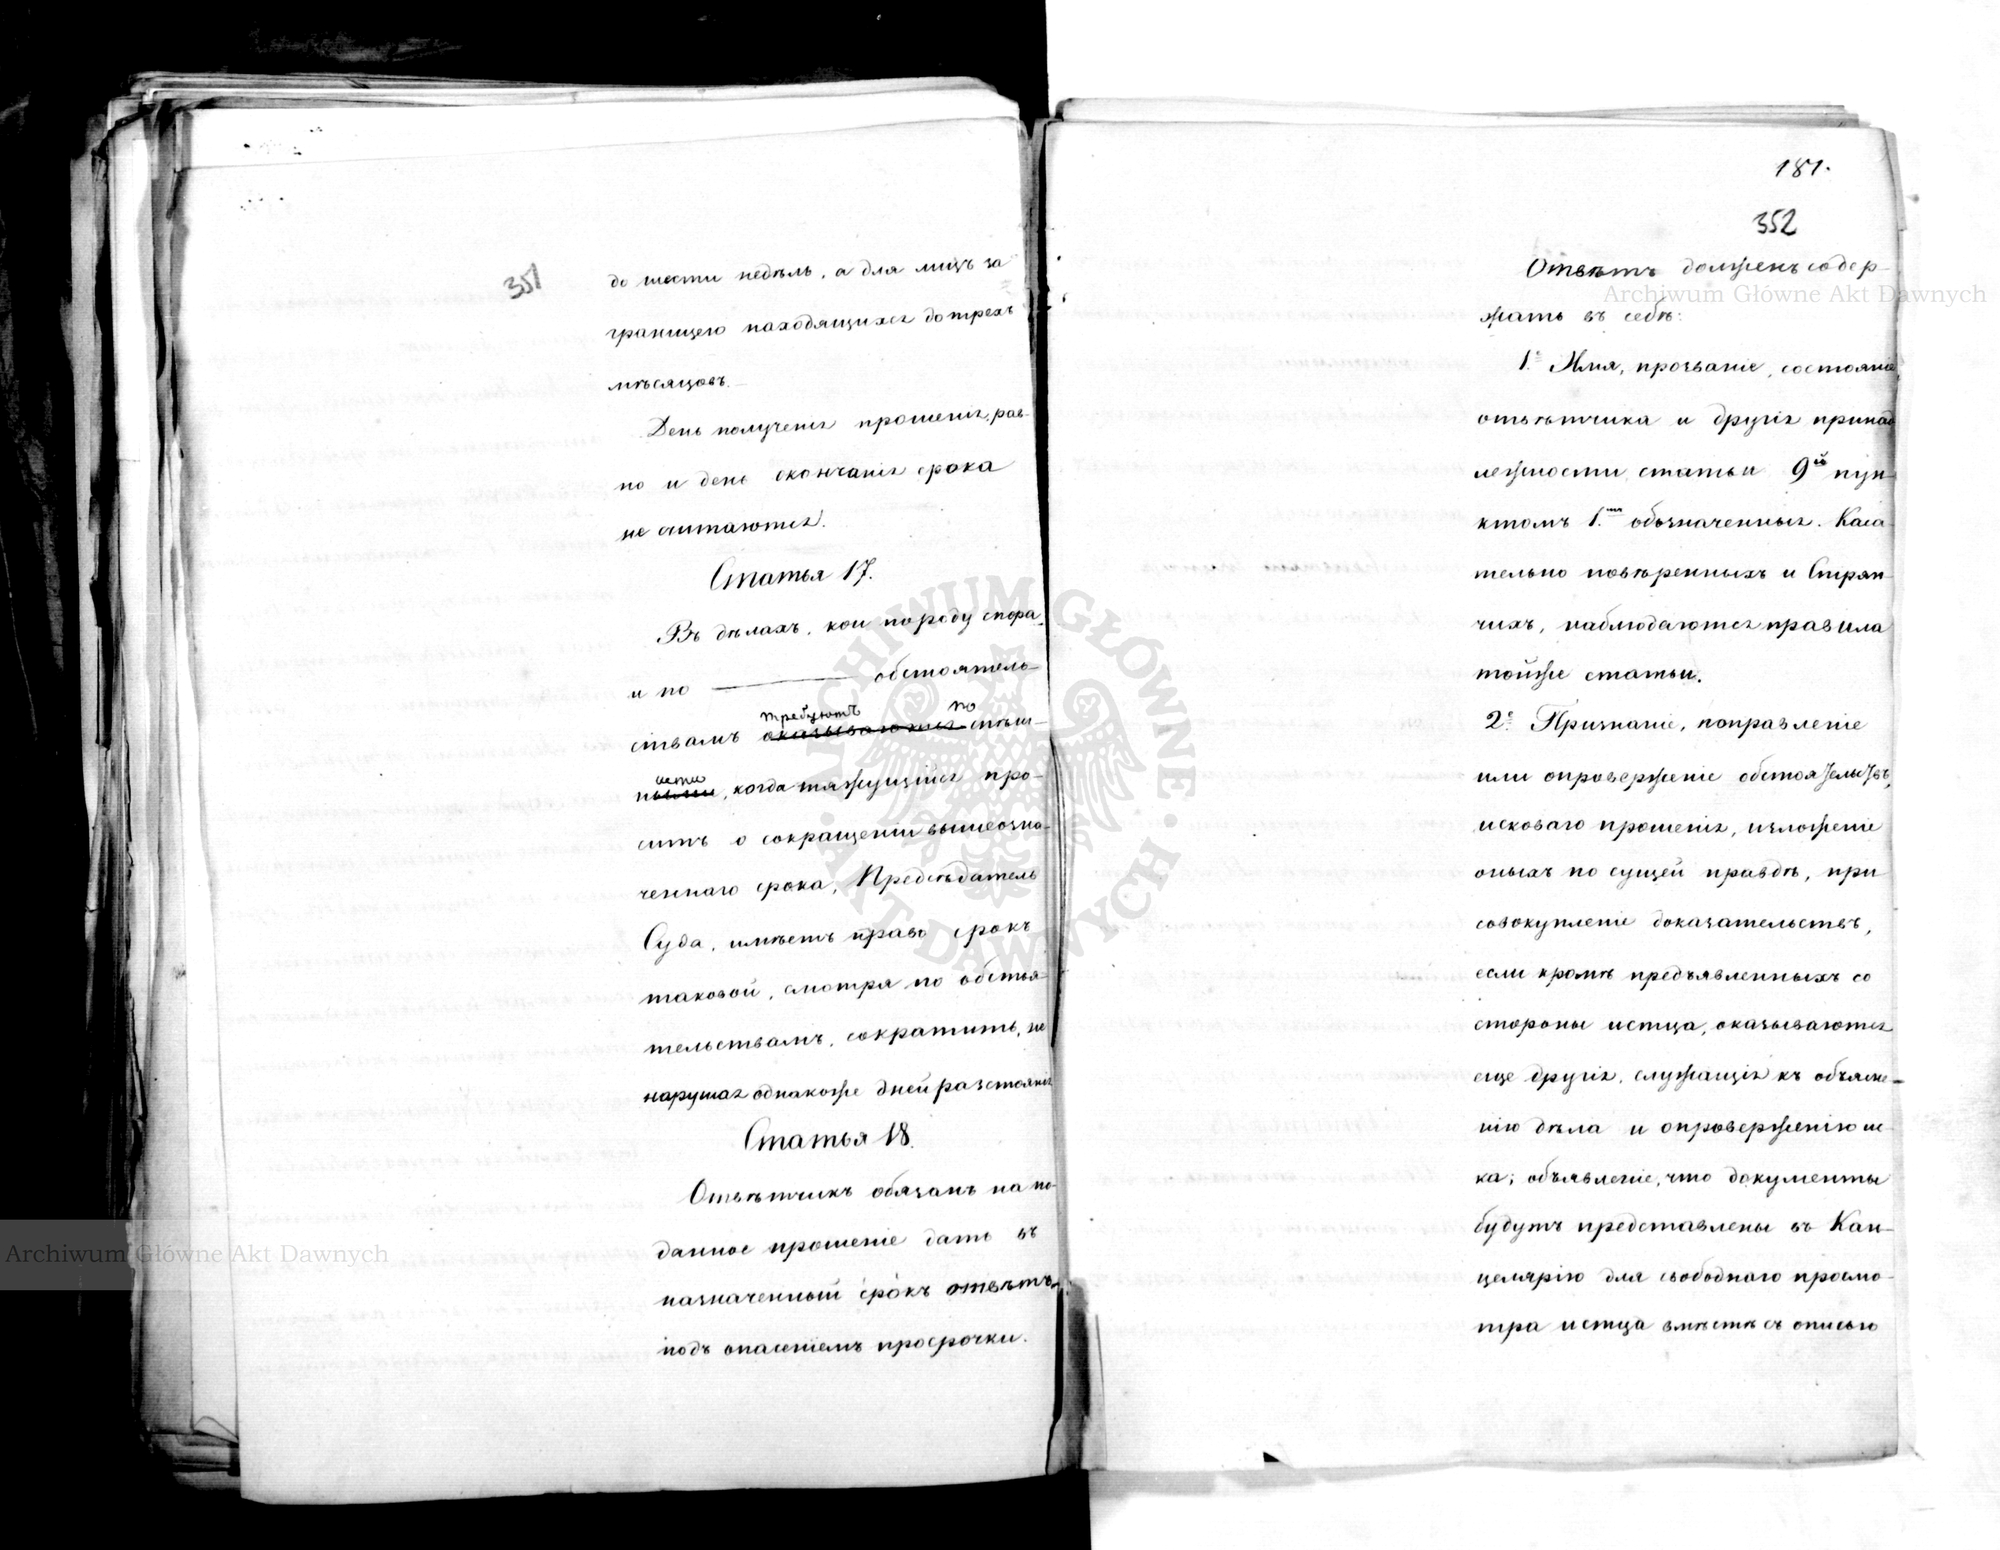 351
до шести недѣль, а для лицъ за
границею находящихся до трехъ
мѣсяцовъ.
День полученія прошенія, рав-
но и день скончанія срока
не считаются.
Статья 17.
Въ дѣлахъ, кои породу спора,
и по ——— обстоятель-
требуютъ по
ствамъ оказываются спѣш-
ности
ными, когда тяжущійся про-
ситъ о сокращеніи вышеозна-
ченнаго срока, Предсѣдатель
Суда, имѣетъ право срокъ
таковой, смотря по обстоя-
тельствамъ, сократить, не
нарушая однакоже дней разстоянія
Статья 18.
Отвѣтчикъ обязанъ на по-
данное прошеніе дать въ
назначенный срокъ отвѣтъ,
подъ опасеніемъ просрочки.
181.
352
Отвѣтъ долженъ содер-
жать въ себѣ:
1.е Имя, прозваніе, состояніе,
отвѣтчика и другія принад
лежности статьи 9ой пун-
ктомъ 1.мъ обозначенныя. Каса-
тельно повѣренныхъ и Стряп-
чихъ, наблюдаются правила
тойже статьи.
2.е Признаніе, поправленіе
или опроверженіе обстоятельствъ,
исковаго прошенія, изложеніе
оныхъ по сущей правдѣ, при
совокупленіе доказательствъ,
если кромѣ предъявленныхъ со
стороны истца, оказываются
еще другія, служащія къ объясне-
нію дѣла и опроверженію ис-
ка; объявленіе, что документы
будутъ представлены въ Кан-
целярію для свободнаго просмо-
тра истца вмѣстѣ съ описью
Archiwum Główne Akt Dawnych
Archiwum Główne Akt Dawnych
ARCHIWUM GŁÓWNE · AKT DAWNYCH ·